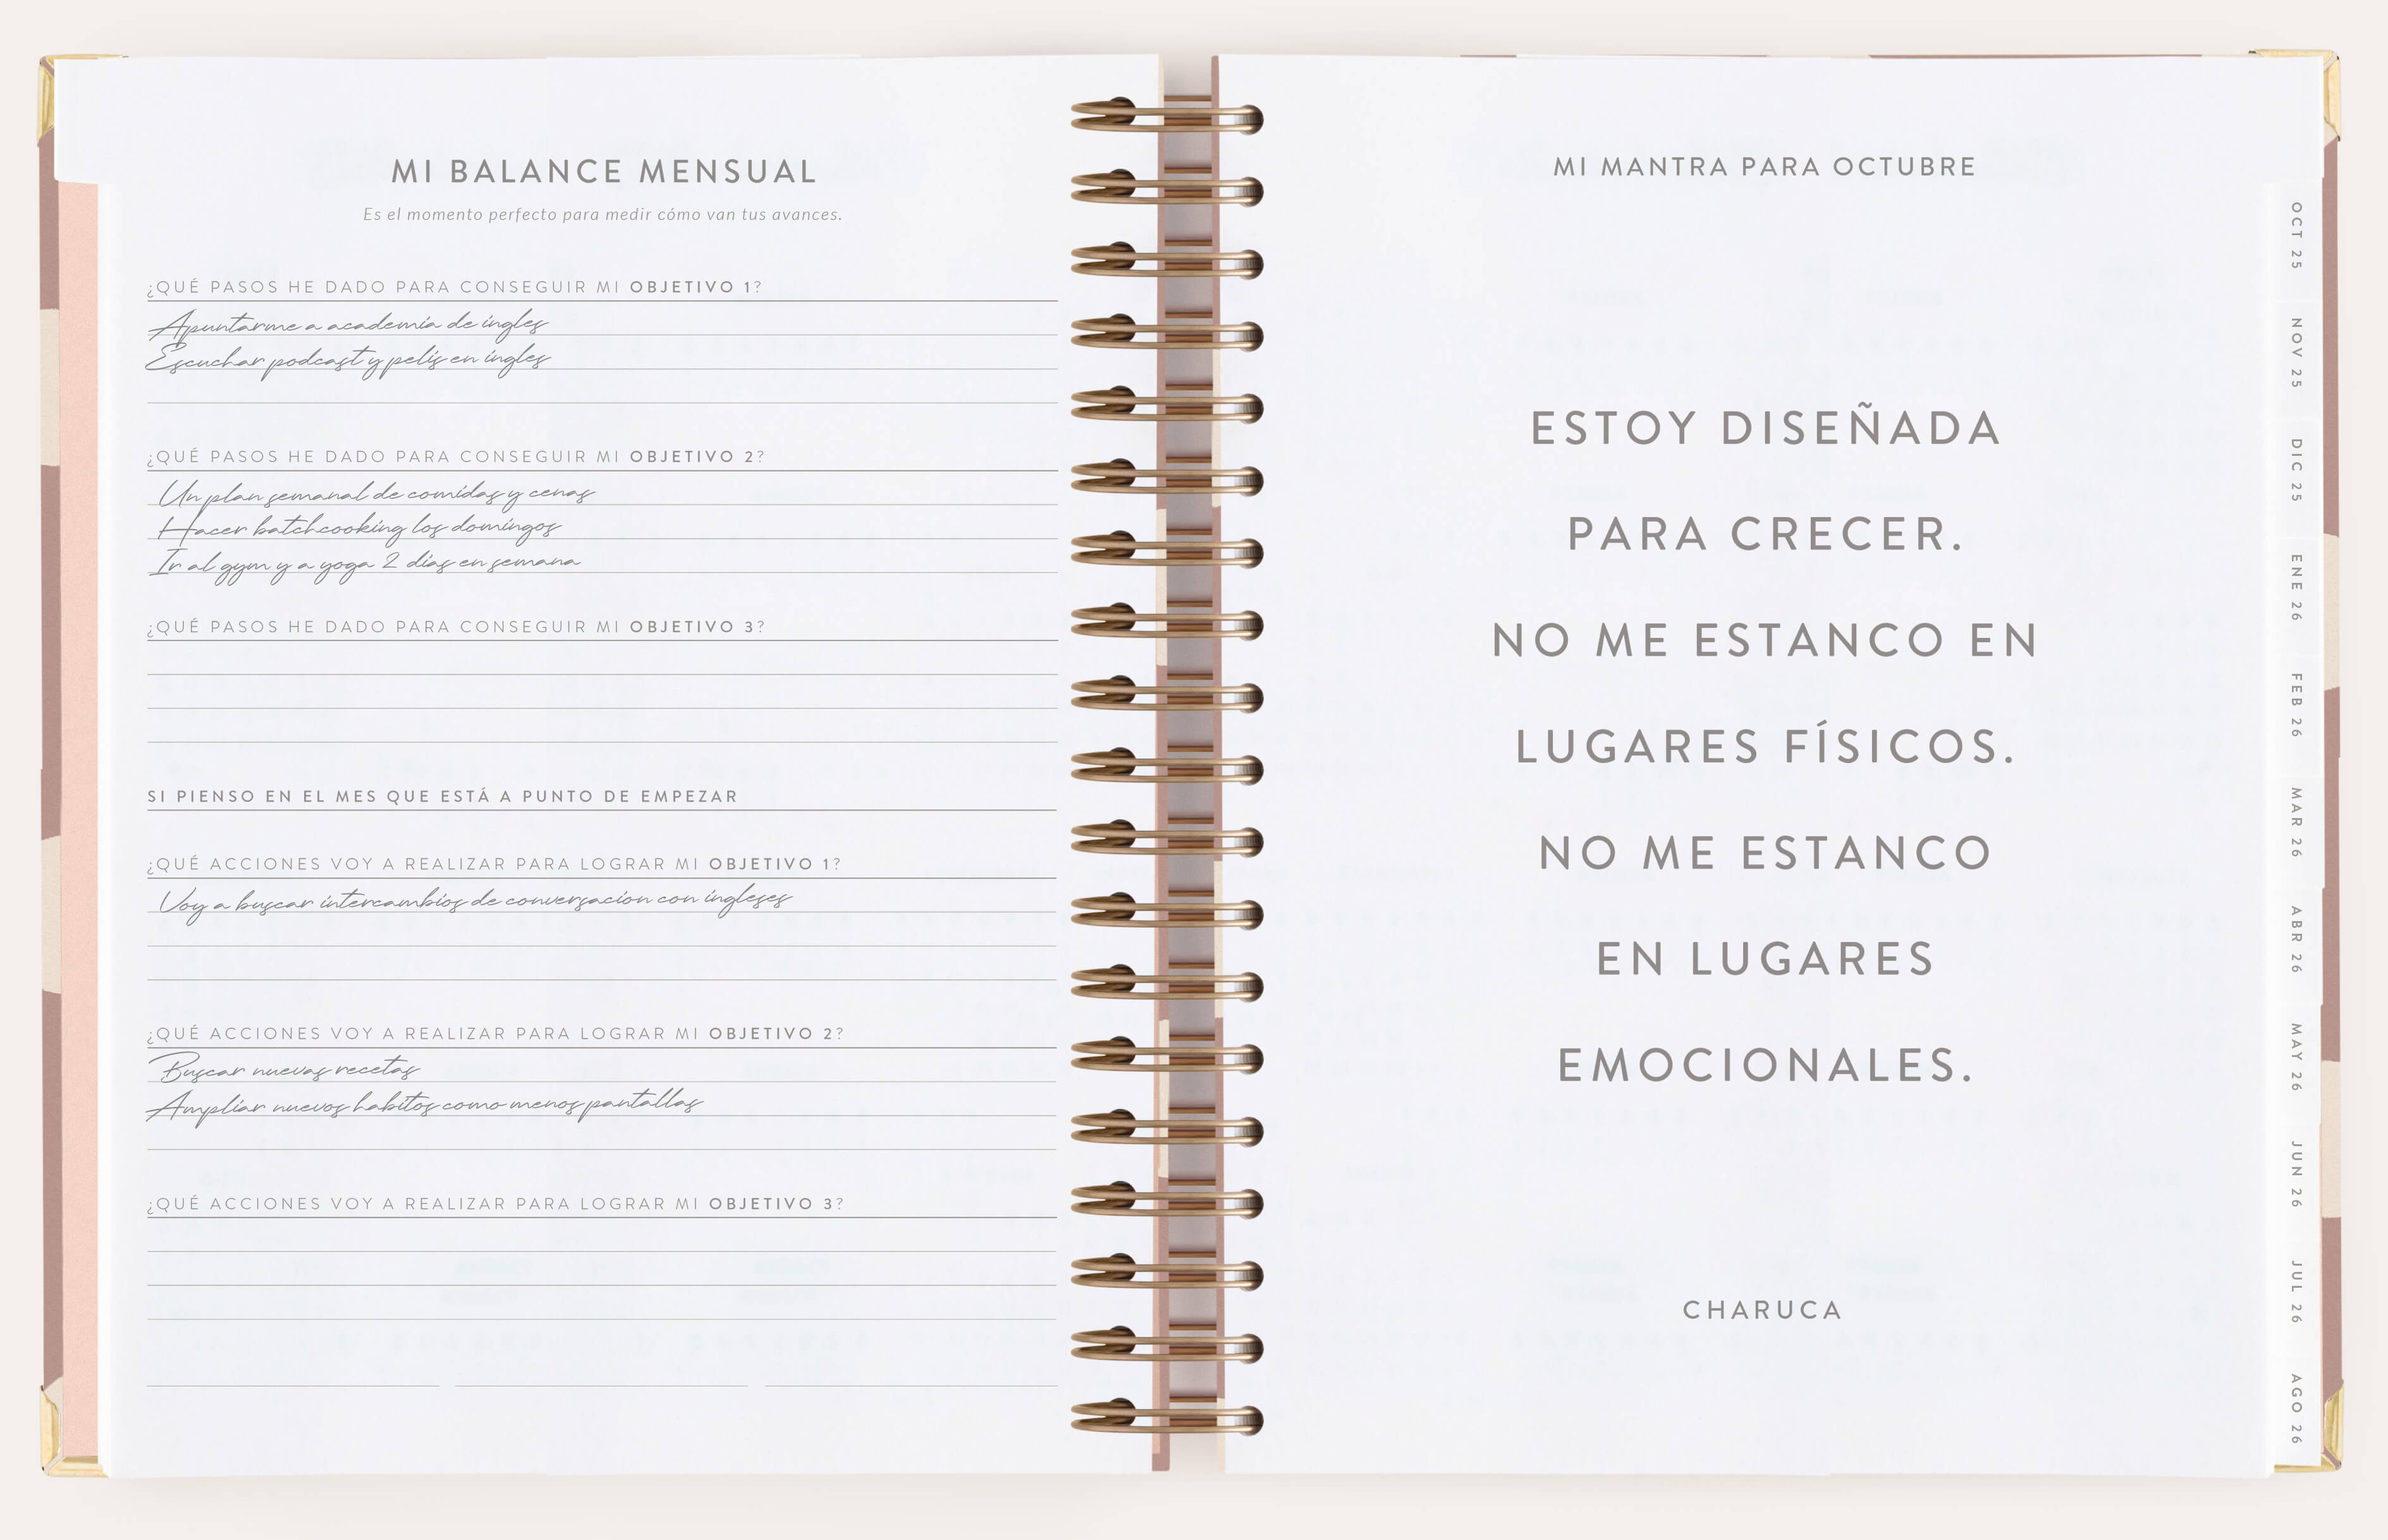 MI BALANCE MENSUAL
Es el momento perfecto para medir cómo van tus avances.
¿QUÉ PASOS HE DADO PARA CONSEGUIR MI OBJETIVO 1?
Apuntarme a academia de ingles
Escuchar podcast y pelis en ingles
¿QUÉ PASOS HE DADO PARA CONSEGUIR MI OBJETIVO 2?
Un plan semanal de comidas y cenas
Hacer batchcooking los domingos
Ir al gym y a yoga 2 días en semana
¿QUÉ PASOS HE DADO PARA CONSEGUIR MI OBJETIVO 3?
SI PIENSO EN EL MES QUE ESTÁ A PUNTO DE EMPEZAR
¿QUÉ ACCIONES VOY A REALIZAR PARA LOGRAR MI OBJETIVO 1?
Voy a buscar intercambios de conversacion con ingleses
¿QUÉ ACCIONES VOY A REALIZAR PARA LOGRAR MI OBJETIVO 2?
Buscar nuevas recetas
Ampliar nuevos habitos como menos pantallas
¿QUÉ ACCIONES VOY A REALIZAR PARA LOGRAR MI OBJETIVO 3?
MI MANTRA PARA OCTUBRE
ESTOY DISEÑADA
PARA CRECER.
NO ME ESTANCO EN
LUGARES FÍSICOS.
NO ME ESTANCO
EN LUGARES
EMOCIONALES.
CHARUCA
OCT 25
NOV 25
DIC 25
ENE 26
FEB 26
MAR 26
ABR 26
MAY 26
JUN 26
JUL 26
AGO 26